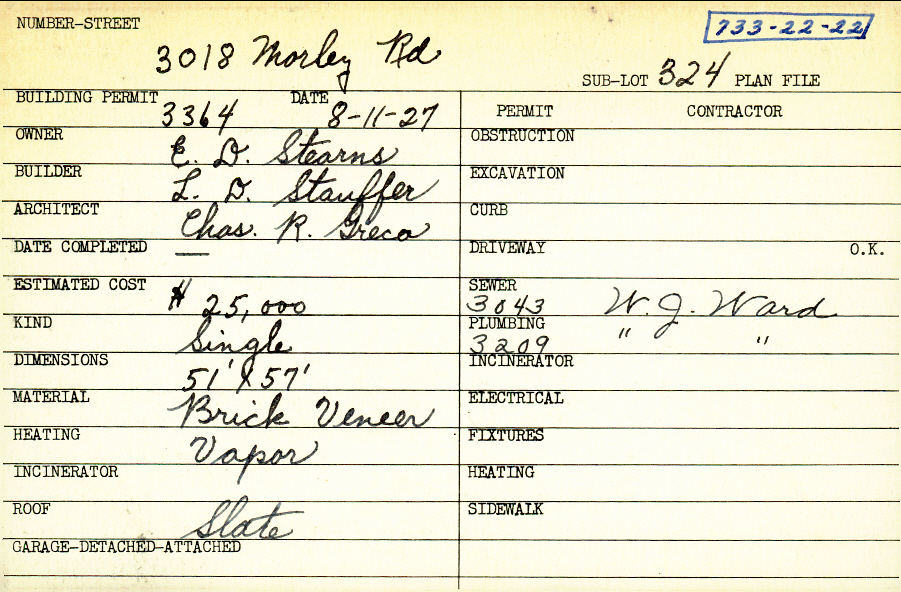 NUMBER-STREET
733-22-22
3018 Morley Rd
SUB-LOT 324 PLAN FILE
BUILDING PERMIT 3364 DATE 8-11-27
PERMIT CONTRACTOR
OWNER E. D. Stearns
OBSTRUCTION
BUILDER L. D. Stauffer
EXCAVATION
ARCHITECT Chas. R. Greco
CURB
DATE COMPLETED —
DRIVEWAY O.K.
ESTIMATED COST $ 25,000
SEWER 3043 W. J. Ward
KIND Single
PLUMBING 3209 " "
DIMENSIONS 51' X 57'
INCINERATOR
MATERIAL Brick Veneer
ELECTRICAL
HEATING Vapor
FIXTURES
INCINERATOR
HEATING
ROOF Slate
SIDEWALK
GARAGE-DETACHED-ATTACHED